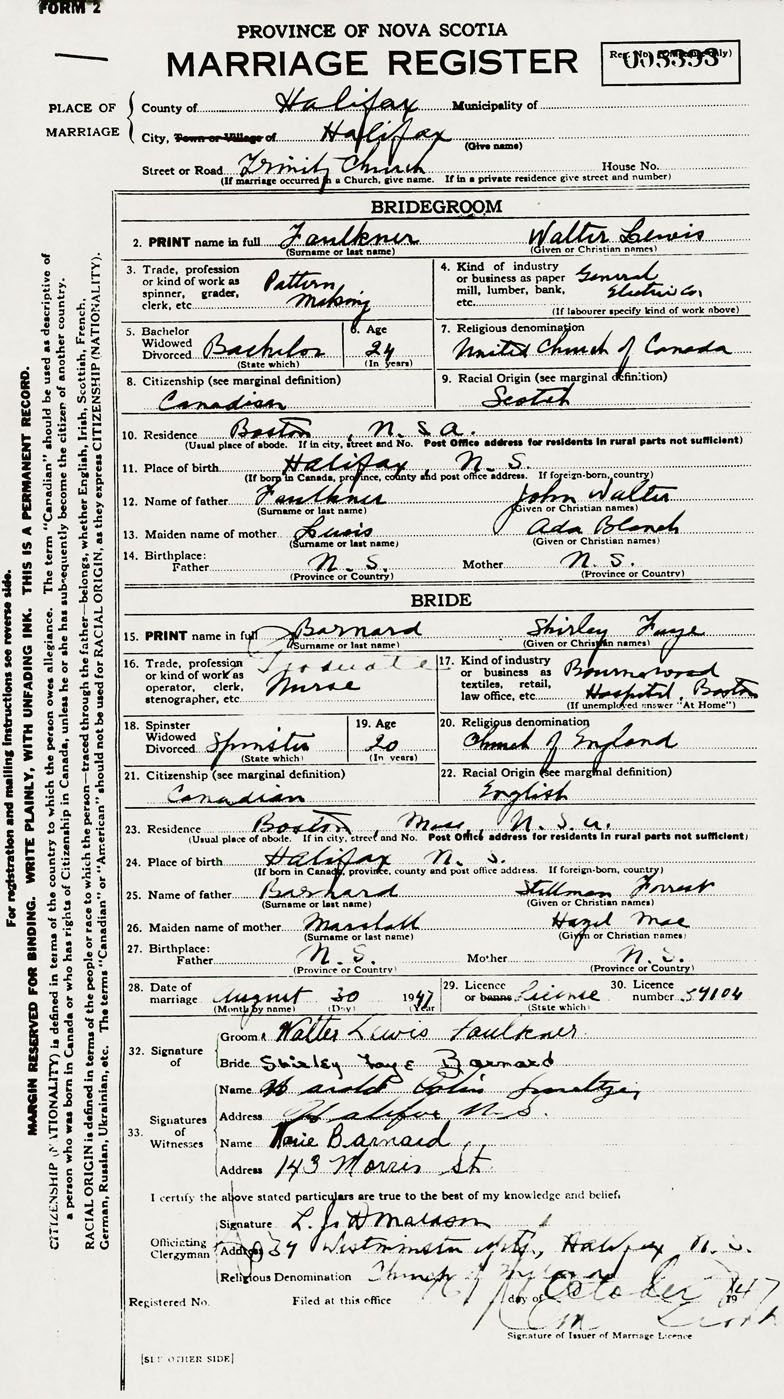 FORM 2
PROVINCE OF NOVA SCOTIA
MARRIAGE REGISTER
Reg. No. (Office use only)
005393
PLACE OF MARRIAGE
County of Halifax Municipality of
City, Town or Village of Halifax
(Give name)
Street or Road Trinity Church House No.
(If marriage occurred in a Church, give name. If in a private residence give street and number)
BRIDEGROOM
2. PRINT name in full Faulkner Walter Lewis
(Surname or last name) (Given or Christian names)
3. Trade, profession or kind of work as spinner, grader, clerk, etc. Pattern Making
4. Kind of industry or business as paper mill, lumber, bank, etc. General Electric Co.
(If labourer specify kind of work above)
5. Bachelor Widowed Divorced Bachelor
(State which)
6. Age 24
(In years)
7. Religious denomination
United Church of Canada
8. Citizenship (see marginal definition)
Canadian
9. Racial Origin (see marginal definition)
Scotch
10. Residence Boston, U.S.A.
(Usual place of abode. If in city, street and No. Post Office address for residents in rural parts not sufficient)
11. Place of birth Halifax, N.S.
(If born in Canada, province, county and post office address. If foreign-born, country)
12. Name of father Faulkner John Walter
(Surname or last name) (Given or Christian names)
13. Maiden name of mother Lewis Ada Blanch
(Surname or last name) (Given or Christian names)
14. Birthplace:
Father N.S. Mother N.S.
(Province or Country) (Province or Country)
BRIDE
15. PRINT name in full Barnard Shirley Faye
(Surname or last name) (Given or Christian names)
16. Trade, profession or kind of work as operator, clerk, stenographer, etc. Graduate Nurse
17. Kind of industry or business as textiles, retail, law office, etc. Bournewood Hospital, Boston
(If unemployed answer "At Home")
18. Spinster Widowed Divorced Spinster
(State which)
19. Age 20
(In years)
20. Religious denomination
Church of England
21. Citizenship (see marginal definition)
Canadian
22. Racial Origin (see marginal definition)
English
23. Residence Boston, Mass, U.S.A.
(Usual place of abode. If in city, street and No. Post Office address for residents in rural parts not sufficient)
24. Place of birth Halifax N.S.
(If born in Canada, province, county and post office address. If foreign-born, country)
25. Name of father Barnard Stillman Forrest
(Surname or last name) (Given or Christian names)
26. Maiden name of mother Marshall Hazel Mae
(Surname or last name) (Given or Christian names)
27. Birthplace:
Father N.S. Mother N.S.
(Province or Country) (Province or Country)
28. Date of marriage August 30 1947
(Month by name) (Day) (Year)
29. Licence or banns License
(State which)
30. Licence number 59104
32. Signature of
Groom Walter Lewis Faulkner
Bride Shirley Faye Barnard
33. Signatures of Witnesses
Name Harold Smeltzer
Address Halifax N.S.
Name Marie Barnard
Address 143 Morris St.
I certify the above stated particulars are true to the best of my knowledge and belief.
Officiating Clergyman
Signature L. J.
Address Westminster Apts, Halifax N.S.
Religious Denomination Church of England
Registered No. Filed at this office day of October 1947
Signature of Issuer of Marriage Licence
[SEE OTHER SIDE]
For registration and mailing instructions see reverse side.
MARGIN RESERVED FOR BINDING. WRITE PLAINLY, WITH UNFADING INK. THIS IS A PERMANENT RECORD.
CITIZENSHIP (NATIONALITY) is defined in terms of the country to which the person owes allegiance. The term "Canadian" should be used as descriptive of
a person who was born in Canada or who has rights of Citizenship in Canada, unless he or she has subsequently become the citizen of another country.
RACIAL ORIGIN is defined in terms of the people or race to which the person—traced through the father—belongs, whether English, Irish, Scottish, French,
German, Russian, Ukrainian, etc. The terms "Canadian" or "American" should not be used for RACIAL ORIGIN, as they express CITIZENSHIP (NATIONALITY).